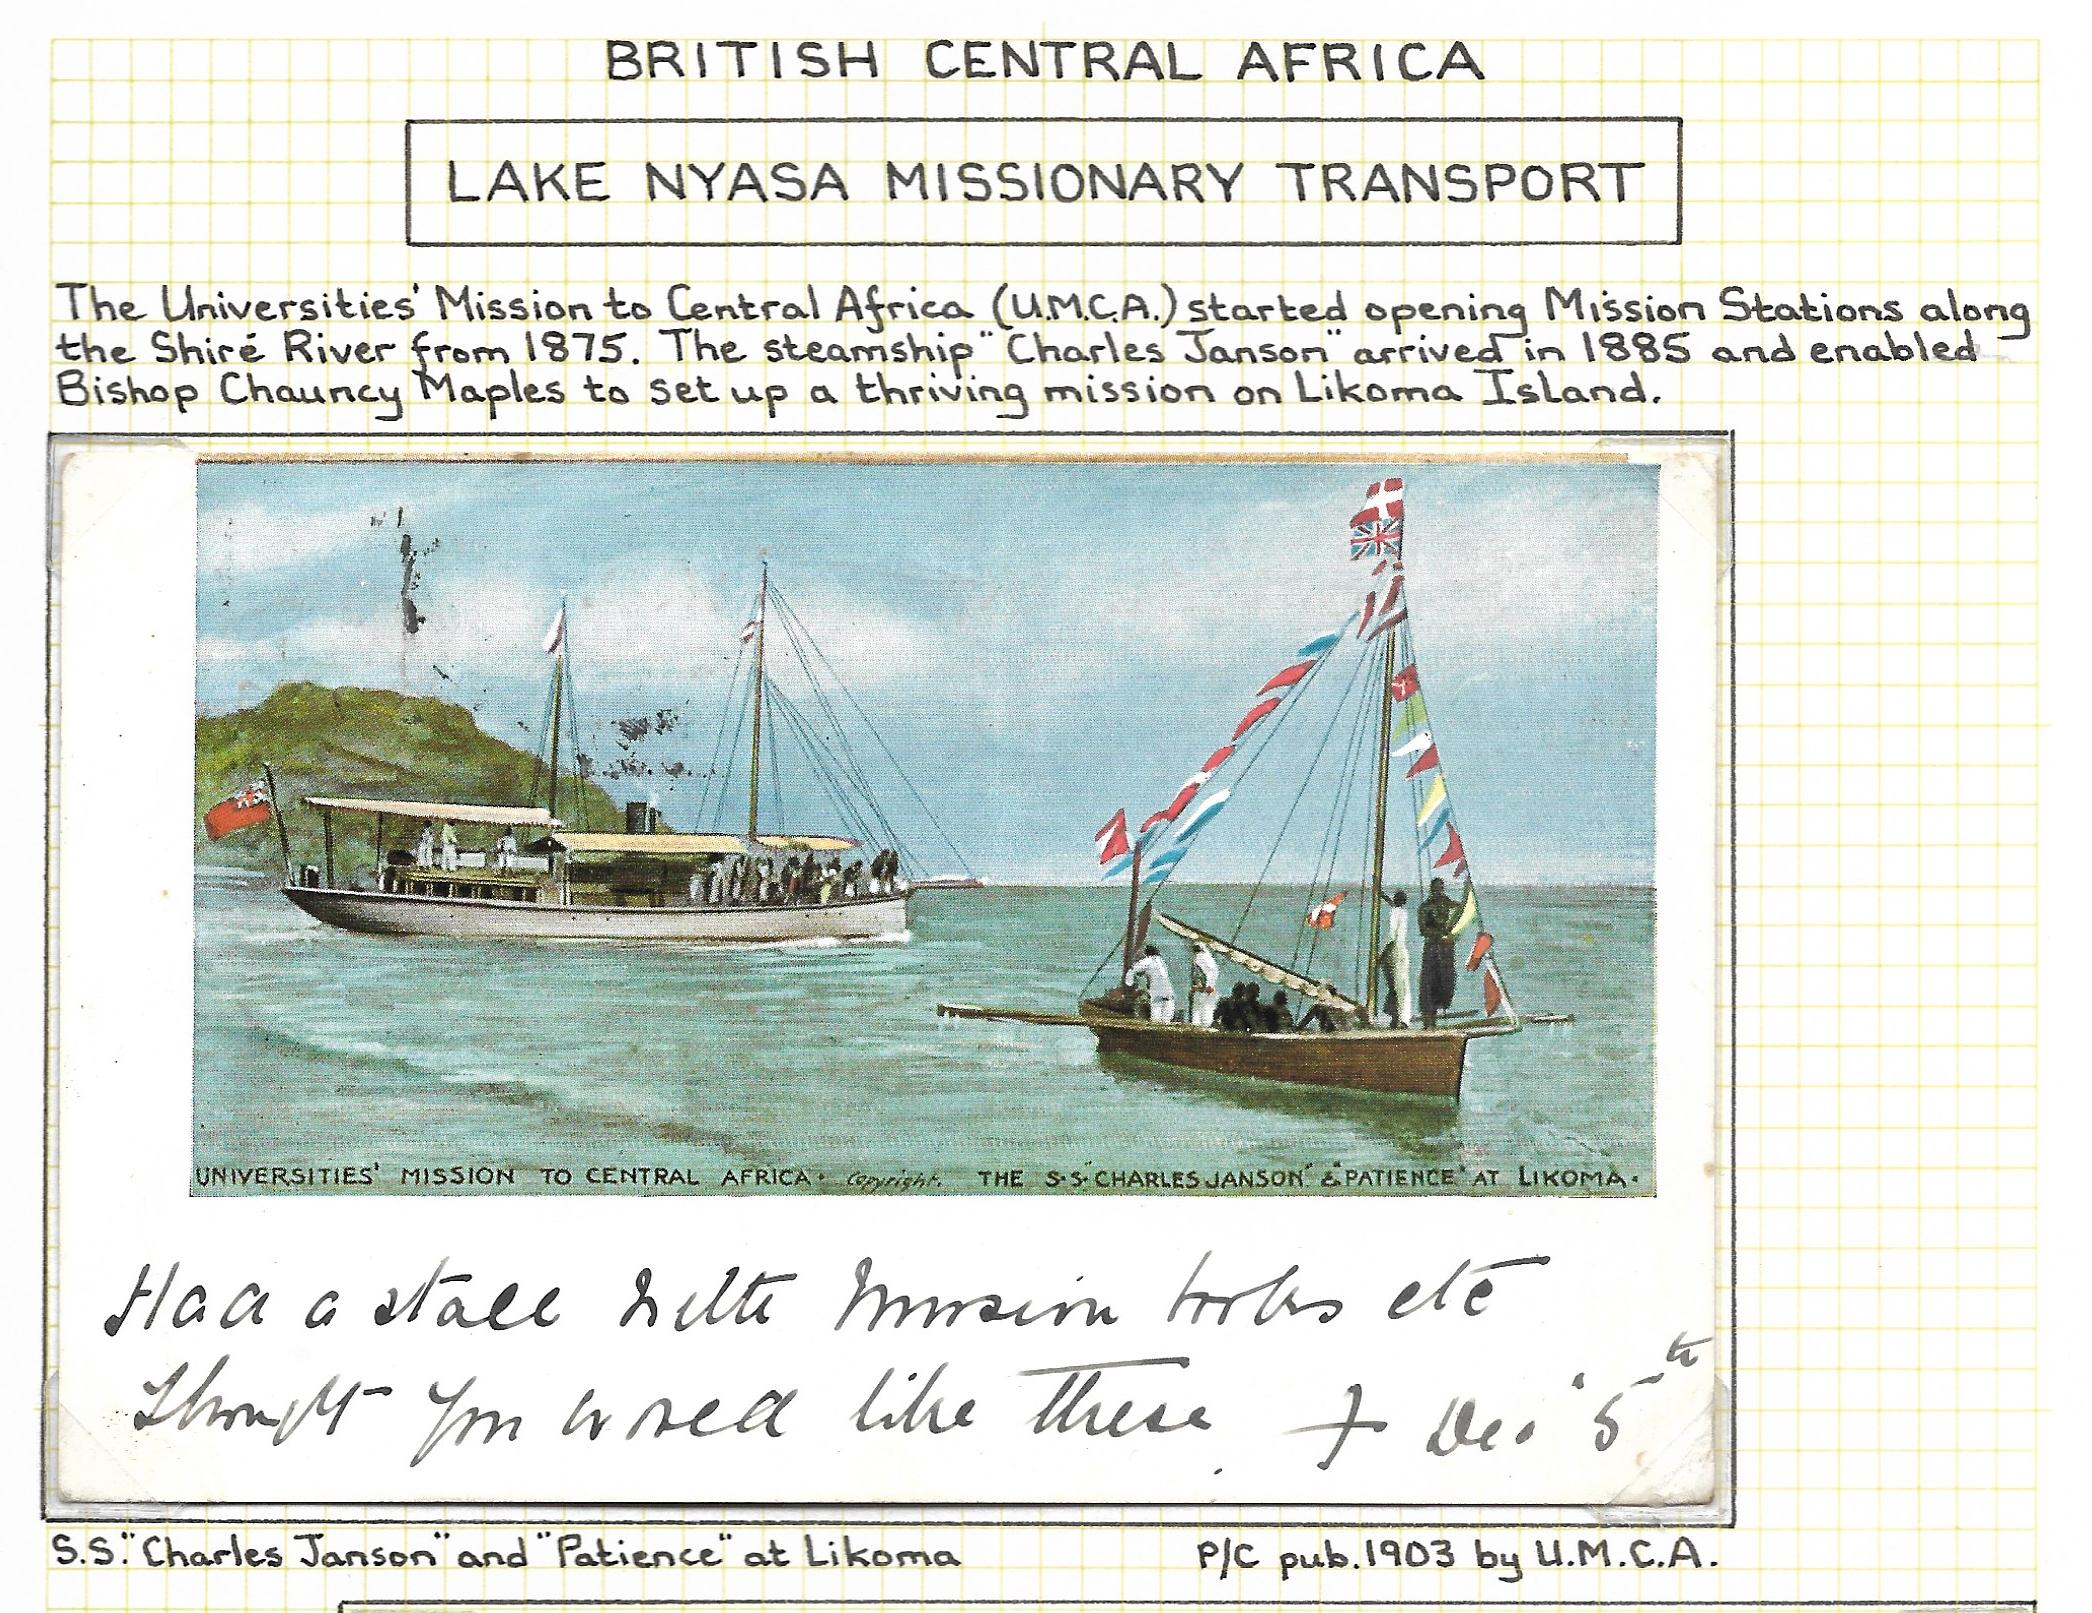 BRITISH CENTRAL AFRICA
LAKE NYASA MISSIONARY TRANSPORT
The Universities' Mission to Central Africa (U.M.C.A.) started opening Mission Stations along
the Shiré River from 1875. The steamship "Charles Janson" arrived in 1885 and enabled
Bishop Chauncy Maples to set up a thriving mission on Likoma Island.
UNIVERSITIES' MISSION TO CENTRAL AFRICA. Copyright. THE S.S. "CHARLES JANSON" & "PATIENCE" AT LIKOMA.
Had a stall with Mission books etc
Thought you would like these + Dec 5th
S.S. "Charles Janson" and "Patience" at Likoma
P/C pub. 1903 by U.M.C.A.